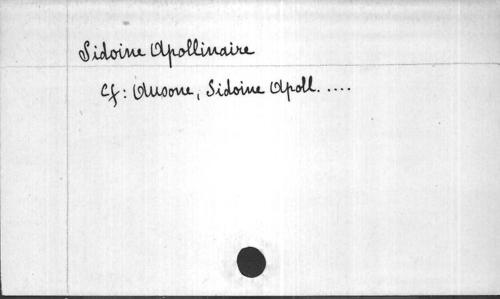 Sidoine Apollinaire
Cf: Ausone, Sidoine Apoll. ....